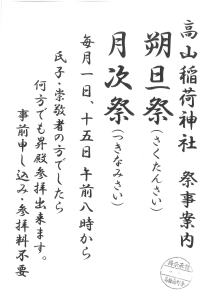 高山稲荷神社　祭事案内
朔旦祭(さくたんさい)
月次祭(つきなみさい)
毎月一日、十五日午前八時から
氏子・崇敬者の方でしたら
何方でも昇殿参拝出来ます。
事前申し込み・参拝料不要